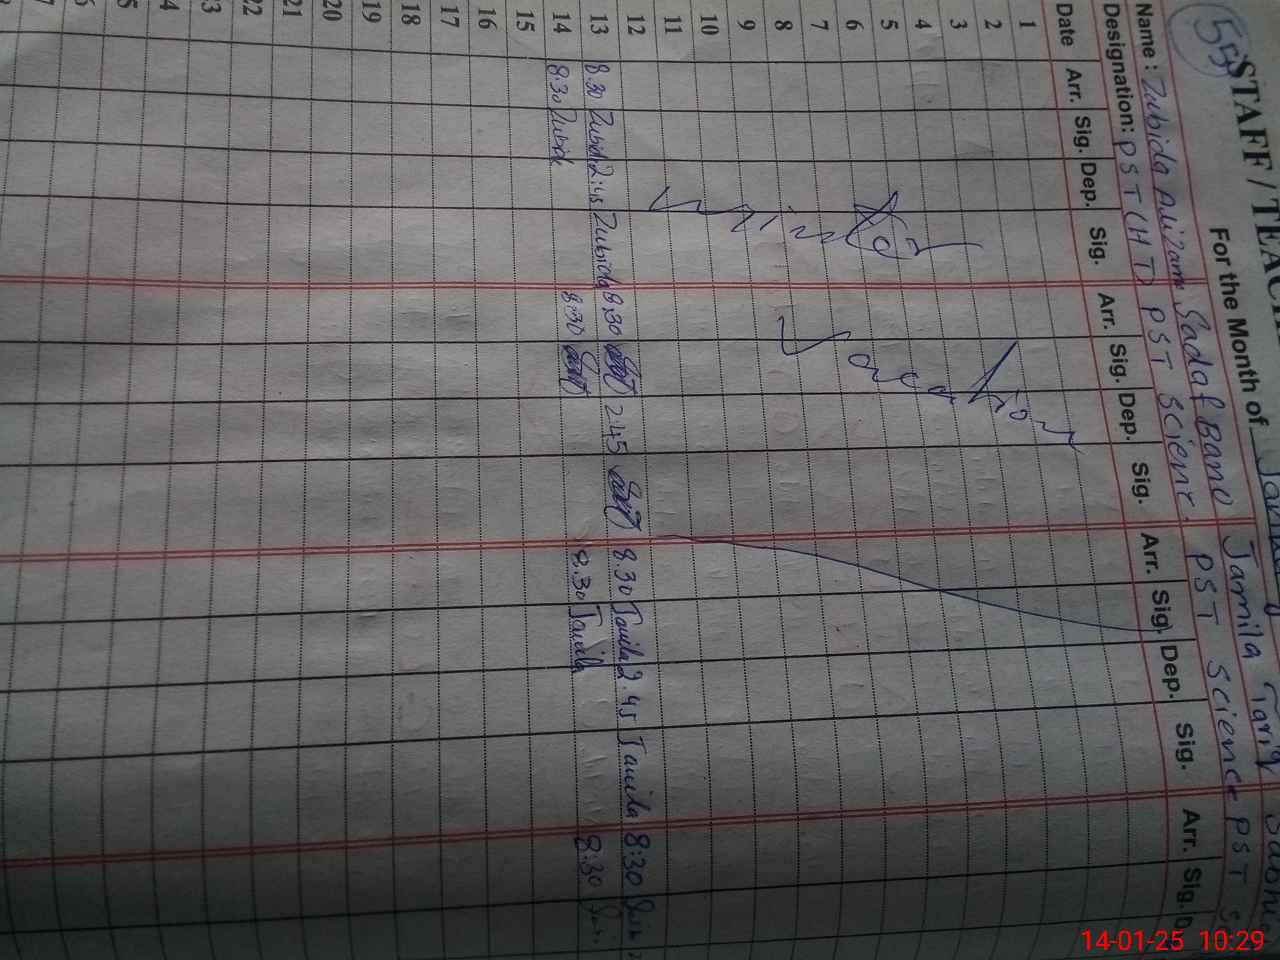 55
STAFF / TEAC
For the Month of
Name : Zubida Sadaf Bano Jamila Tariq
Designation: PST (HT) PST Scienc PST Science PST S
Date Arr. Sig. Dep. Sig. Arr. Sig. Dep. Sig. Arr. Sig. Dep. Sig. Arr. Sig. D
1
2
3
4
5
6
7
8
9
10
11
12
13 8.30 Zubida 2:45 Zubida 8:30 2:45 8.30 Jamila 2.45 Jamila 8:30
14 8.30 Zubida 8:30 8.30 Jamila 8:30
15
16
17
18
19
20
21
22
23
24
Winter Vacation
14-01-25 10:29